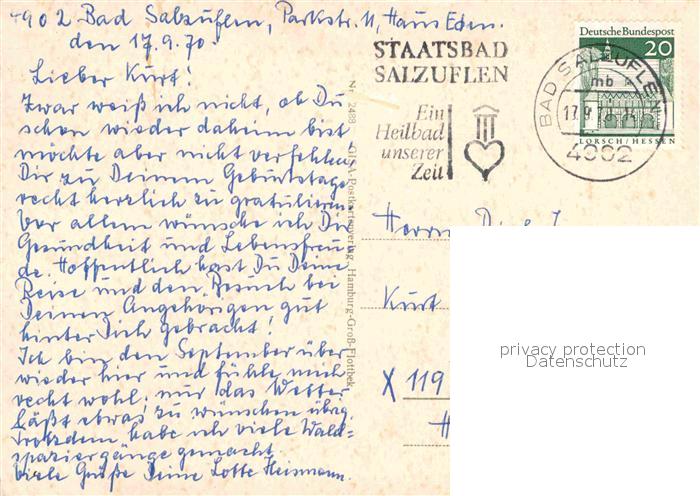 4902 Bad Salzuflen, Parkstr. 11, Haus Eden.
den 17.9.70.
Lieber Kurt!
Zwar weiß ich nicht, ob Du
schon wieder daheim bist
möchte aber nicht verfehlen,
Dir zu Deinem Geburtstage
recht herzlich zu gratulieren.
Vor allem wünsche ich Dir
Gesundheit und Lebensfreu
de. Hoffentlich hast Du Deine
Reise und den Besuch bei
Deinen Angehörigen gut
hinter Dich gebracht!
Ich bin den September über
wieder hier und fühle mich
recht wohl, nur das Wetter
läßt etwas zu wünschen übrig.
Trotzdem habe ich viele Wald=
spaziergänge gemacht.
Viele Grüße Deine Lotte Heismann.
Nr. 2488
-Postkartenverlag, Hamburg-Groß-Flottbek
STAATSBAD
SALZUFLEN
Ein
Heilbad
unserer
Zeit
BAD SALZUFLE
mb
17.9.70
4902
Deutsche Bundespost
20
LORSCH/HESSEN
Herrn
Kurt
X 119
H
privacy protection
Datenschutz